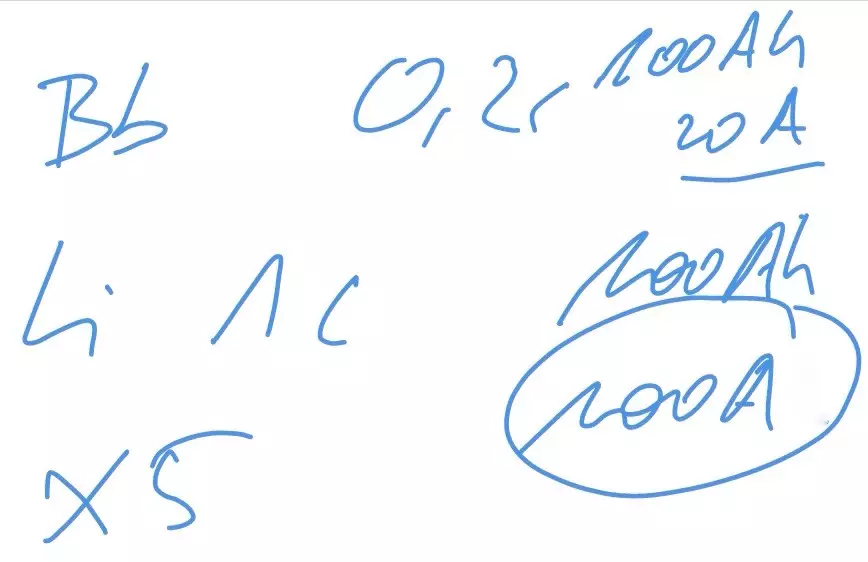 Bb 0,2c 100Ah
20A
Li 1c 100Ah
100A
x5